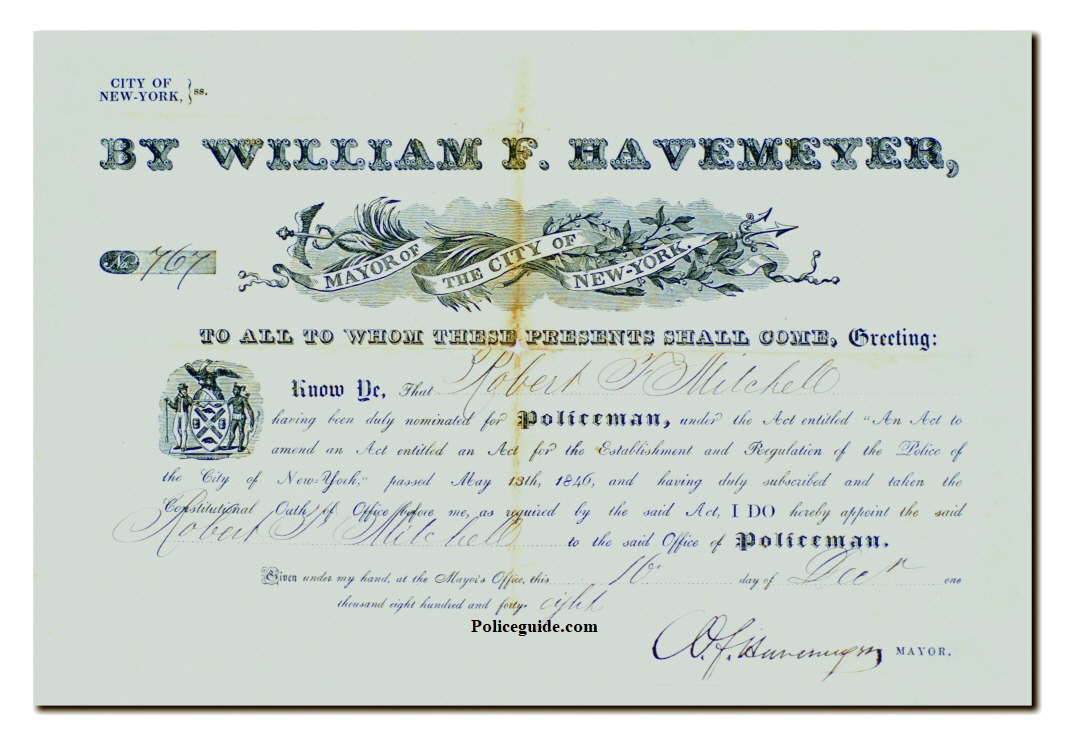 CITY OF
NEW-YORK, } ss.
BY WILLIAM F. HAVEMEYER,
MAYOR OF THE CITY OF NEW-YORK.
No. 767
TO ALL TO WHOM THESE PRESENTS SHALL COME, Greeting:
Know Ye, That Robert F Mitchell
having been duly nominated for Policeman, under the Act entitled "An Act to
amend an Act entitled an Act for the Establishment and Regulation of the Police of
the City of New=York," passed May 13th, 1846, and having duly subscribed and taken the
Constitutional Oath of Office before me, as required by the said Act, I DO hereby appoint the said
Robert F Mitchell to the said Office of Policeman.
Given under my hand, at the Mayor's Office, this 16 day of Decr one
thousand eight hundred and forty- eight
Policeguide.com
W. F. Havemeyer MAYOR.